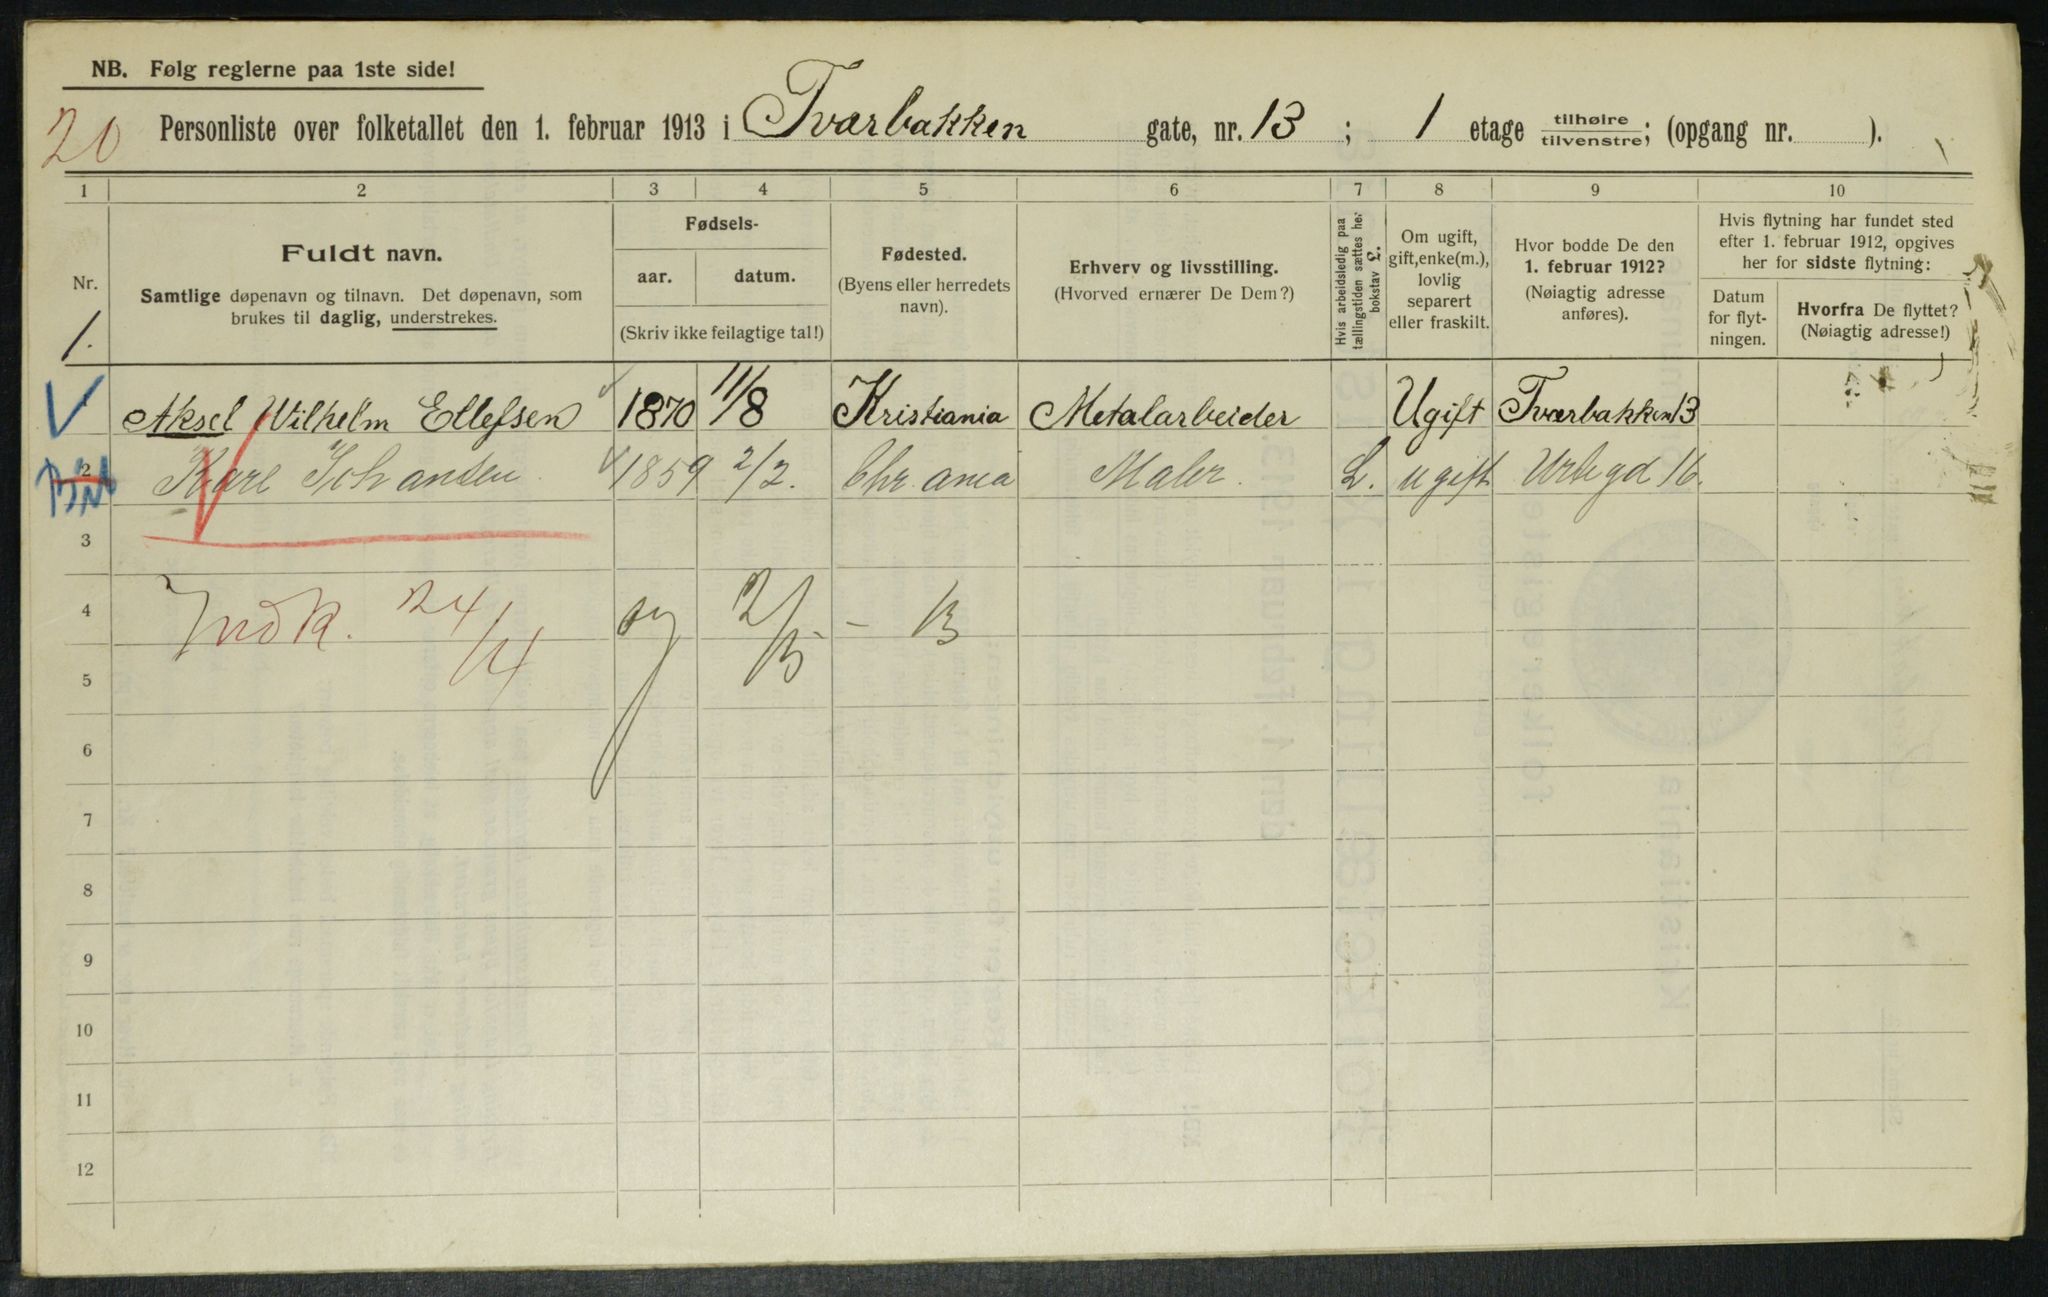 NB. Følg reglerne paa 1ste side!
20 Personliste over folketallet den 1. februar 1913 i Tværbakken gate, nr. 13 ; 1 etage tilhøire/tilvenstre; (opgang nr. ).
1 2 3 4 5 6 7 8 9 10
Nr.
1.
Fuldt navn.
Samtlige døpenavn og tilnavn. Det døpenavn, som
brukes til daglig, understrekes.
Fødsels-
aar. datum.
(Skriv ikke feilagtige tal!)
Fødested.
(Byens eller herredets
navn).
Erhverv og livsstilling.
(Hvorved ernærer De Dem?)
Hvis arbeidsledig paa
tællingstiden sættes her
bokstav L.
Om ugift,
gift, enke(m.),
lovlig
separert
eller fraskilt.
Hvor bodde De den
1. februar 1912?
(Nøiagtig adresse
anføres).
Hvis flytning har fundet sted
efter 1. februar 1912, opgives
her for sidste flytning:
Datum
for flyt-
ningen.
Hvorfra De flyttet?
(Nøiagtig adresse!)
Aksel Wilhelm Ellefsen 1870 11/8 Kristiania Metalarbeider Ugift Tværbakken 13
2 Karl Johansen 1859 2/2. Chr.ania Maler. L. ugift Urtegd 16.
3
4 Indk. 24/4 2/5 - 13
5
6
7
8
9
10
11
12